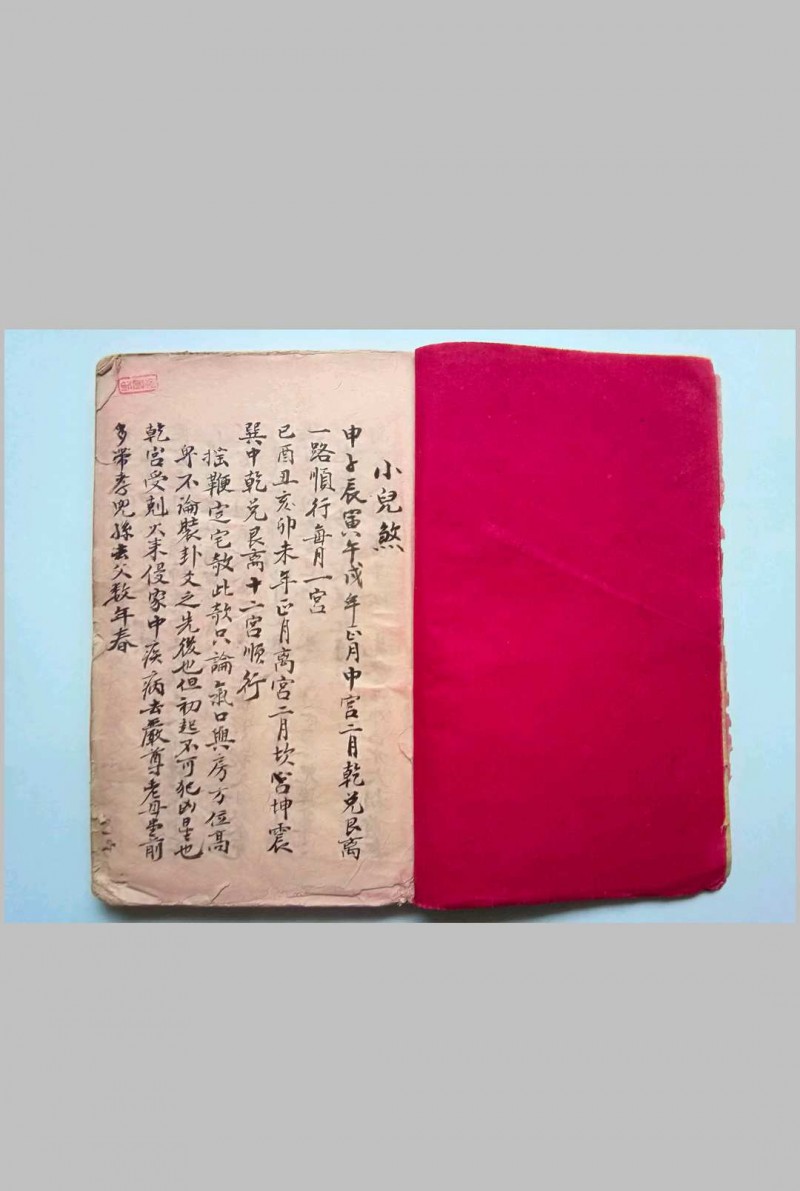 小兒煞
申子辰寅午戌年正月中宮二月乾兌艮离
一路順行每月一宮
巳酉丑亥卯未年正月离宮二月坎宮坤震
巽中乾兌艮离十二宮順行
搖鞭定宅敨此敨只論氣口與房方位高
卑不論裝卦爻之先後也但初起不可犯凶星也
乾宮受剋火来侵家中疾病去嚴尊老母堂前
多帶孝兒孫去父数年春